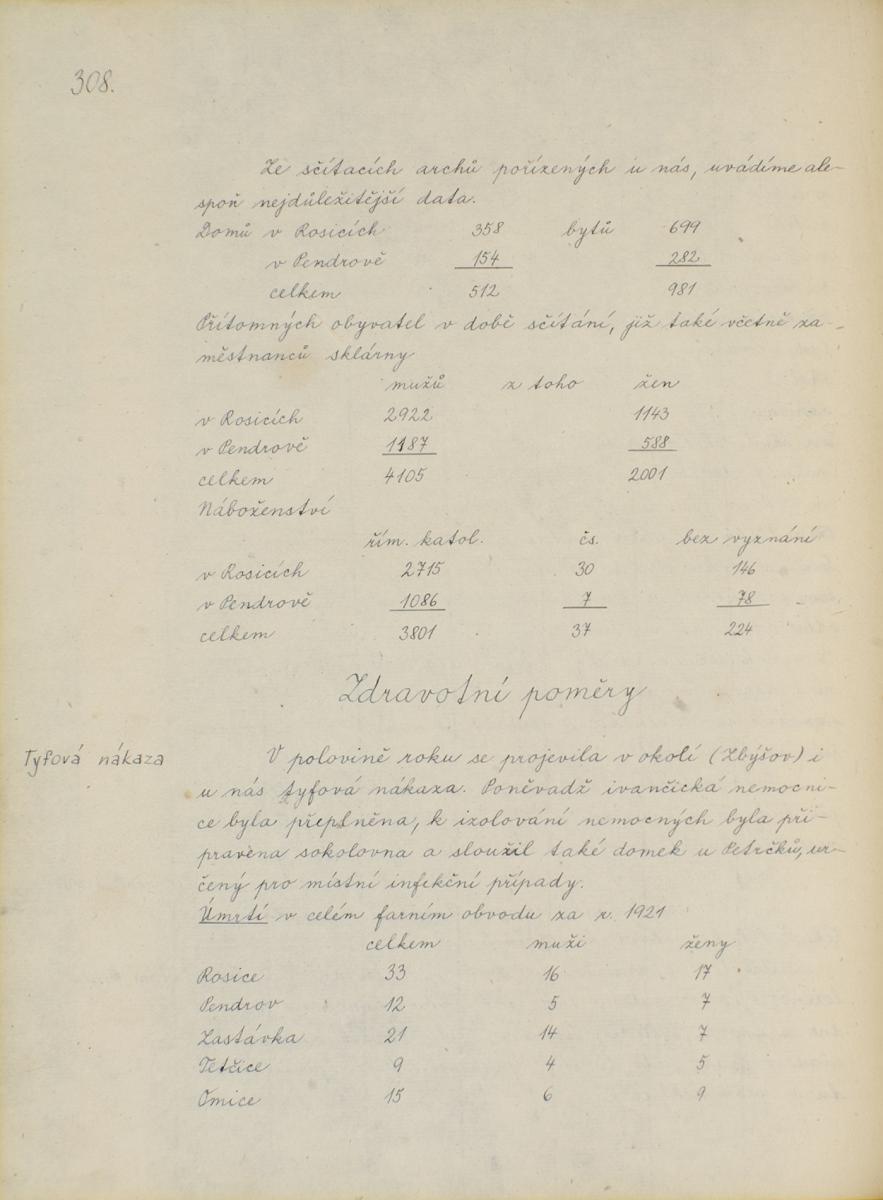 308.
Ze sčítacích archů pořízených u nás, uvádíme ale-
spoň nejdůležitější data.
Domů v Rosicích 358 bytů 699
v Pendrově 154 282
celkem 512 981
Přítomných obyvatel v době sčítání, již také včetně za-
městnanců sklárny
mužů z toho žen
v Rosicích 2922 1143
v Pendrově 1187 588
celkem 4105 2001
Náboženství
řím. katol. čs. bez vyznání
v Rosicích 2715 30 146
v Pendrově 1086 7 78
celkem 3801 37 224
Zdravotní poměry
Tyfová nákaza
V polovině roku se projevila v okolí (Zbýšov) i
u nás tyfová nákaza. Poněvadž ivančická nemocni-
ce byla přeplněna, k izolování nemocných byla při-
pravena sokolovna a sloužil také domek u Petrčků, ur-
čený pro místní infekční případy.
Úmrtí v celém farním obvodu za r. 1921
celkem muži ženy
Rosice 33 16 17
Pendrov 12 5 7
Zastávka 21 14 7
Tetčice 9 4 5
Omice 15 6 9